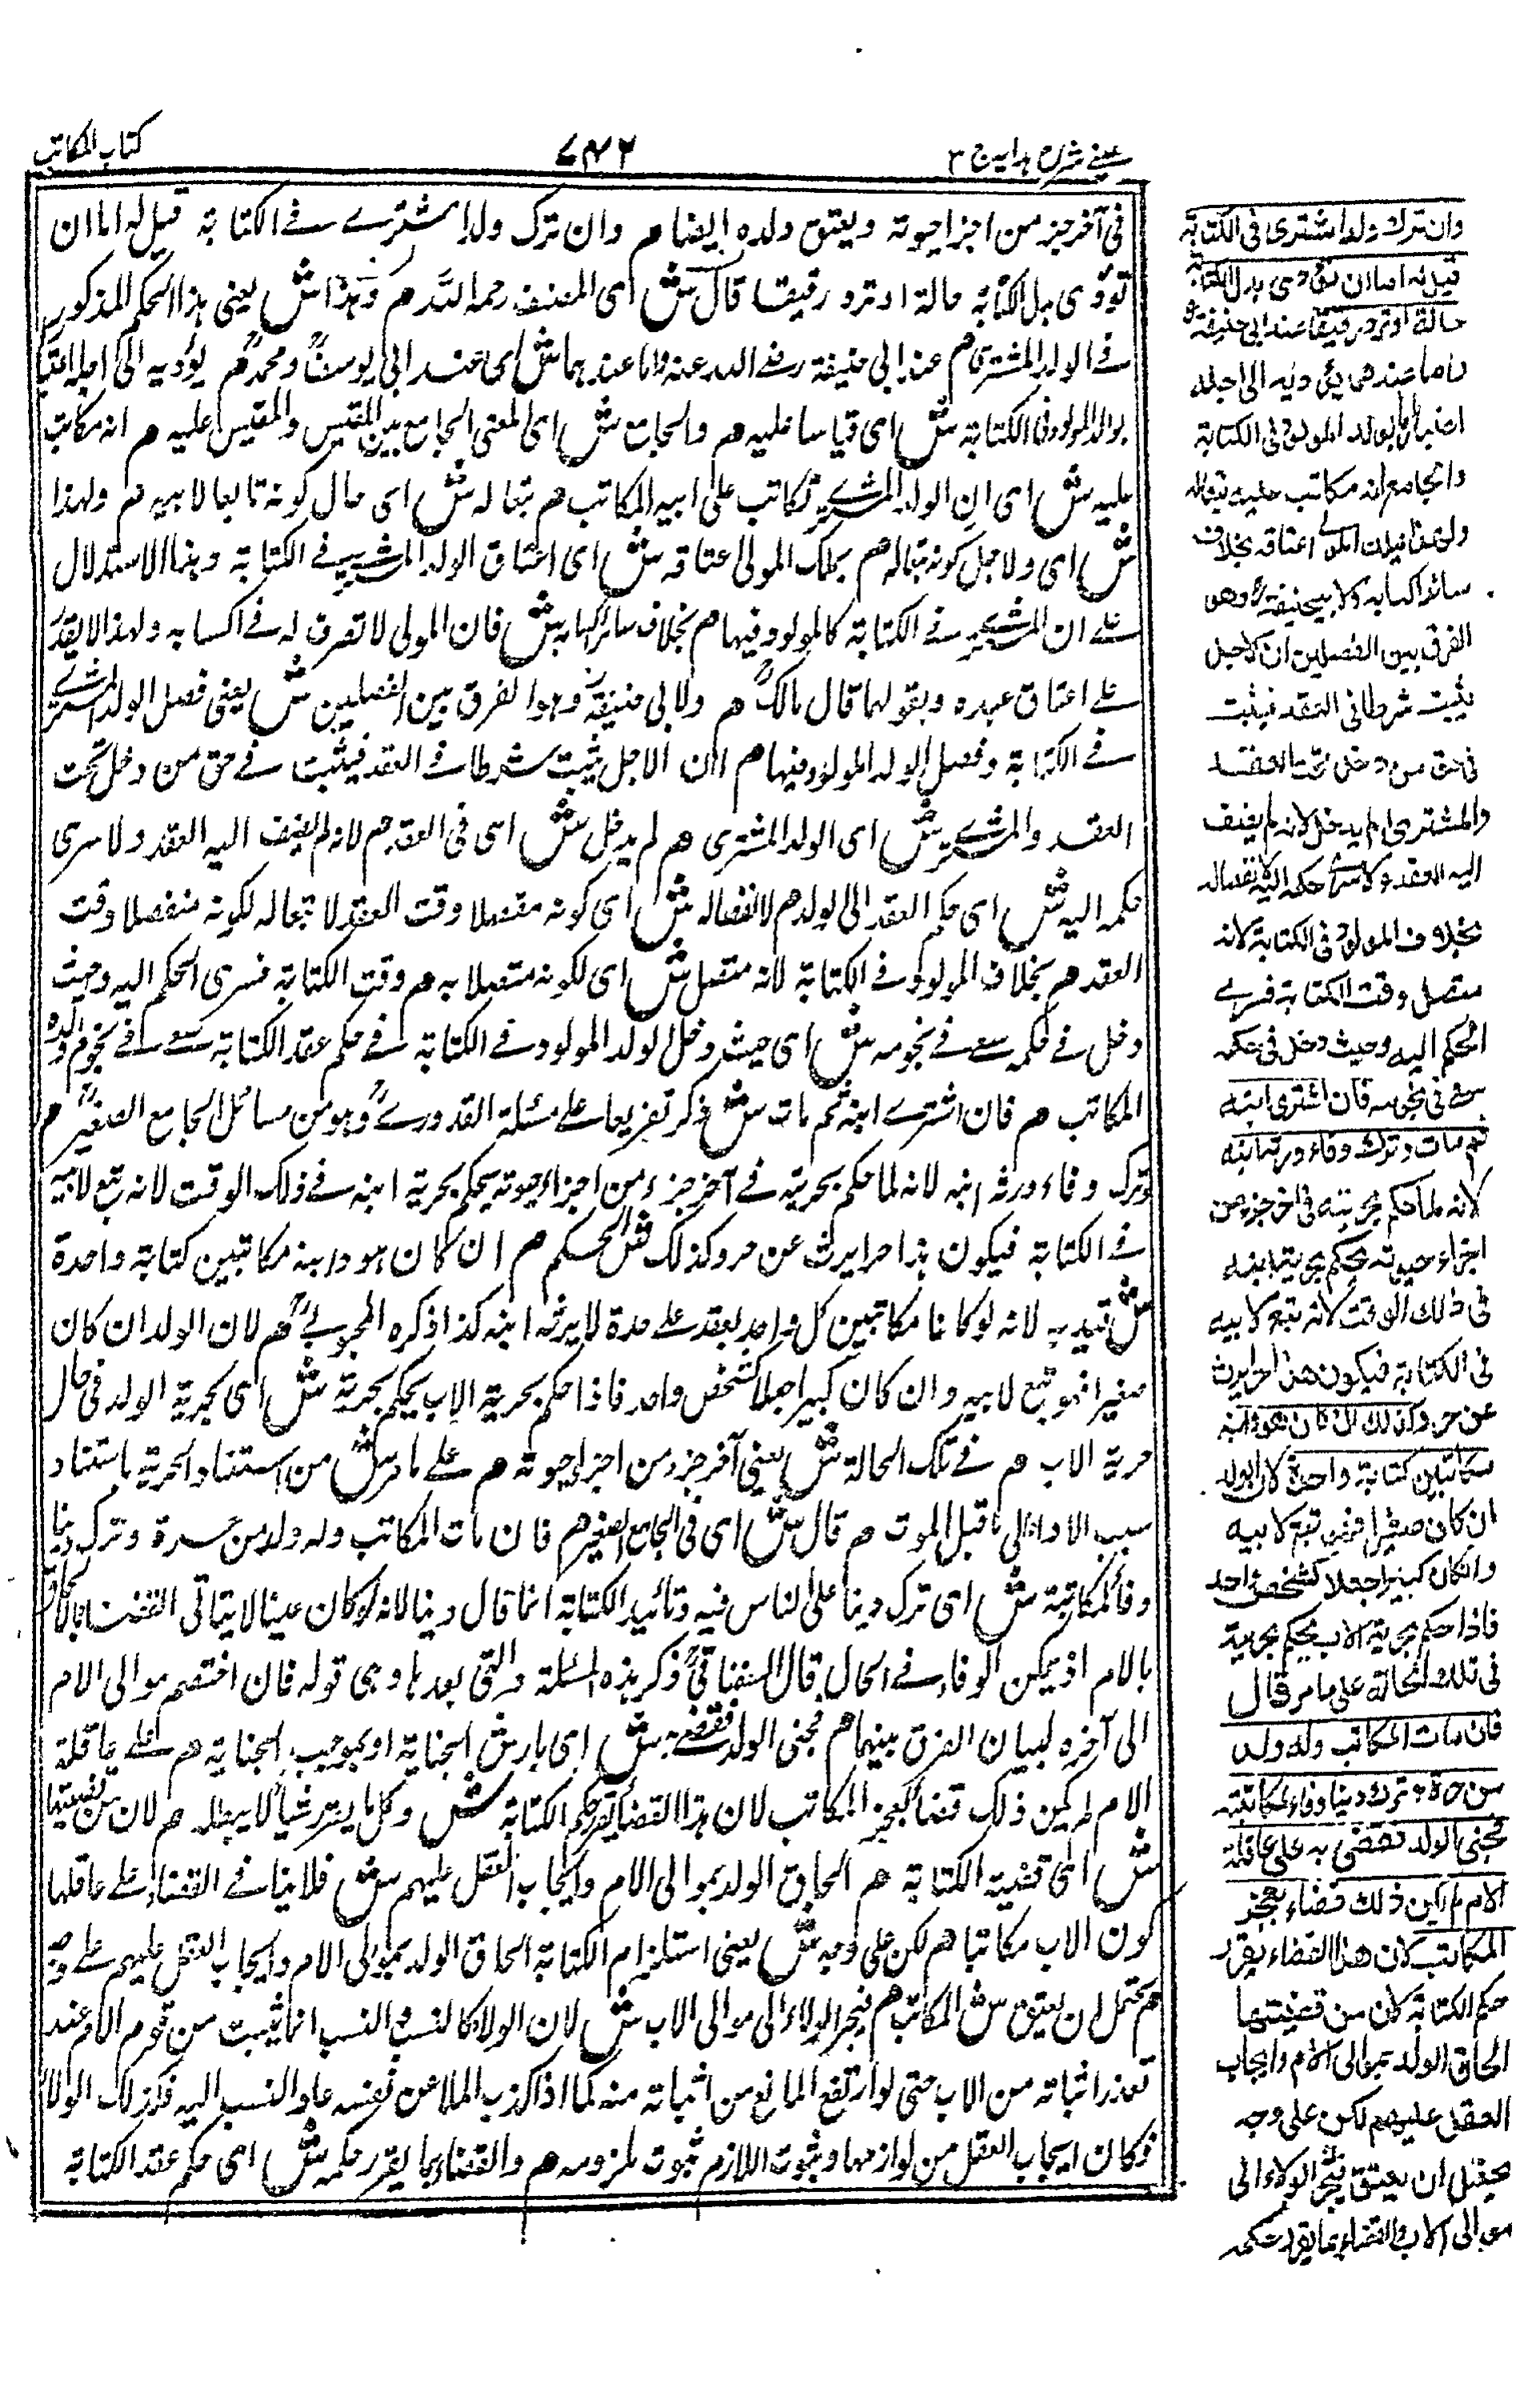 عينى شرح هدايه ج ٣
٧٤٢
كتاب المكاتب
فى آخر جزء من اجزاء حيوته ويعتق ولده ايضا م وان ترك ولدا اشترى فى الكتابة قيل له اما ان
تؤدى بدل الكتابة حالة او ترد رقيقا قال ش اى المصنف رحمه الله م وهذا ش يعنى هذا الحكم المذكور
فى الولد المشترى م عند ابى حنيفة رضى الله عنه واما عندهما ش اى عند ابى يوسف ومحمد م يؤديه الى اجله اعتبارا
بالولد المولود فى الكتابة ش اى قياسا عليه م والجامع ش اى المعنى الجامع بين المقيس والمقيس عليه م انه مكاتب
عليه ش اى ان الولد المشترى تكاتب على ابيه المكاتب م تبعا له ش اى حال كونه تابعا لابيه م ولهذا
ش اى ولاجل كونه تبعا له م يملك المولى اعتاقه ش اى اعتاق الولد المشترى فى الكتابة وهذا الاستدلال
على ان المشترى فى الكتابة كالمولود فيها م بخلاف سائر اكسابه ش فان المولى لا تصرف له فى اكسابه ولهذا لا يقدر
على اعتاق عبده وبقولهما قال مالك م ولابى حنيفة وهو الفرق بين الفصلين ش يعنى فصل الولد المشترى
فى الكتابة وفصل الولد المولود فيها م ان الاجل يثبت شرطا فى العقد فيثبت فى حق من دخل تحت
العقد والمشترى ش اى الولد المشترى م لم يدخل ش اى فى العقد م لانه لم يضف اليه العقد ولا سرى
حكمه اليه ش اى حكم العقد الى الولد م لانفصاله ش اى كونه منفصلا وقت العقد لا تبعا له لكونه منفصلا وقت
العقد م بخلاف المولود فى الكتابة لانه متصل ش اى لكونه متصلا به م وقت الكتابة فسرى الحكم اليه وحيث
دخل فى حكمه سعى فى نجومه ش اى حيث دخل الولد المولود فى الكتابة فى حكم عقد الكتابة سعى فى نجوم والده
المكاتب م فان اشترى ابنه ثم مات ش ذكر تفريعا على مسئلة القدورى وهو من مسائل الجامع الصغير م
وترك وفاء ورثه ابنه لانه لما حكم بحريته فى آخر جزء من اجزاء حيوته يحكم بحرية ابنه فى ذلك الوقت لانه تبع لابيه
فى الكتابة فيكون هذا حرا يرث عن حر وكذلك ش الحكم م ان كان هو وابنه مكاتبين كتابة واحدة
ش قيد به لانه لو كانا مكاتبين كل واحد بعقد على حدة لا يرثه ابنه كذا ذكره المحبوبى م لان الولد ان كان
صغيرا فهو تبع لابيه وان كان كبيرا جعلا كشخص واحد فاذا حكم بحرية الاب يحكم بحريته ش اى بحرية الولد فى حال
حرية الاب م فى تلك الحالة ش يعنى آخر جزء من اجزاء حيوته م على ما مر ش من استناد الحرية باستناد
سبب الاداء الى ما قبل الموت م قال ش اى فى الجامع الصغير م فان مات المكاتب وله ولد من حرة وترك دينا
وفاء لمكاتبته ش اى ترك دينا على الناس فيه وتأئيد الكتابة انما قال دينا لانه لو كان عينا لا يتاتى القضاء بالالحاق
بالام اذ يمكن الوفاء فى الحال قال السغناقى ذكر هذه المسئلة والتى بعدها وهى قوله فان اختصم موالى الام
الى آخره لبيان الفرق بينهما م فجنى الولد فقضى به ش اى بارش الجناية او بموجب الجناية م على عاقلة
الام لم يكن ذلك قضاء بعجز المكاتب لان هذا القضاء يقرر حكم الكتابة ش وكل ما يقرر شيأ لا يبطله م لان من قضيتها
ش اى قضية الكتابة م الحاق الولد بموالى الام وايجاب العقل عليهم ش فلا ينافى القضاء على عاقلها
كون الاب مكاتبا م لكن على وجه ش يعنى استلزام الكتابة الحاق الولد بموالى الام وايجاب العقل عليهم على وجه
م يحتمل ان يعتق ش المكاتب م فيجر الولاء الى موالى الاب ش لان الولاء كالنسب والنسب انما يثبت من قوم الام عند
تعذر اثباته من الاب حتى لو ارتفع المانع من اثباته منه كما اذا كذب الملاعن نفسه عاد النسب اليه فكذلك الولاء
فكان ايجاب العقل من لوازمها وثبوت اللازم ثبوت ملزومه م والقضاء بما يقرر حكمه ش اى حكم عقد الكتابة
وان ترك ولدا اشترى فى الكتابة
قيل له اما ان تؤدى بدل الكتابة
حالة او ترد رقيقا عند ابى حنيفة
واما عندهما يؤديه الى اجله
اعتبارا بالولد المولود فى الكتابة
والجامع انه مكاتب عليه تبعا له
ولهذا يملك المولى اعتاقه بخلاف
سائر اكسابه ولابى حنيفة وهو
الفرق بين الفصلين ان الاجل
يثبت شرطا فى العقد فيثبت
فى حق من دخل تحت العقد
والمشترى لم يدخل لانه لم يضف
اليه العقد ولا سرى حكمه اليه لانفصاله
بخلاف المولود فى الكتابة لانه
متصل وقت الكتابة فسرى
الحكم اليه وحيث دخل فى حكمه
سعى فى نجومه فان اشترى ابنه
ثم مات وترك وفاء ورثه ابنه
لانه لما حكم بحريته فى اخر جزء من
اجزاء حيوته يحكم بحرية ابنه
فى ذلك الوقت لانه تبع لابيه
فى الكتابة فيكون هذا حرا يرث
عن حر وكذلك ان كان هو وابنه
مكاتبين كتابة واحدة لان الولد
ان كان صغيرا فهو تبع لابيه
وان كان كبيرا جعلا كشخص واحد
فاذا حكم بحرية الاب يحكم بحريته
فى تلك الحالة على ما مر قال
فان مات المكاتب وله ولد
من حرة وترك دينا وفاء لمكاتبته
فجنى الولد فقضى به على عاقلة
الام لم يكن ذلك قضاء بعجز
المكاتب لان هذا القضاء يقرر
حكم الكتابة لان من قضيتها
الحاق الولد بموالى الام وايجاب
العقل عليهم لكن على وجه
يحتمل ان يعتق فيجر الولاء الى
موالى الاب والقضاء بما يقرر حكمه